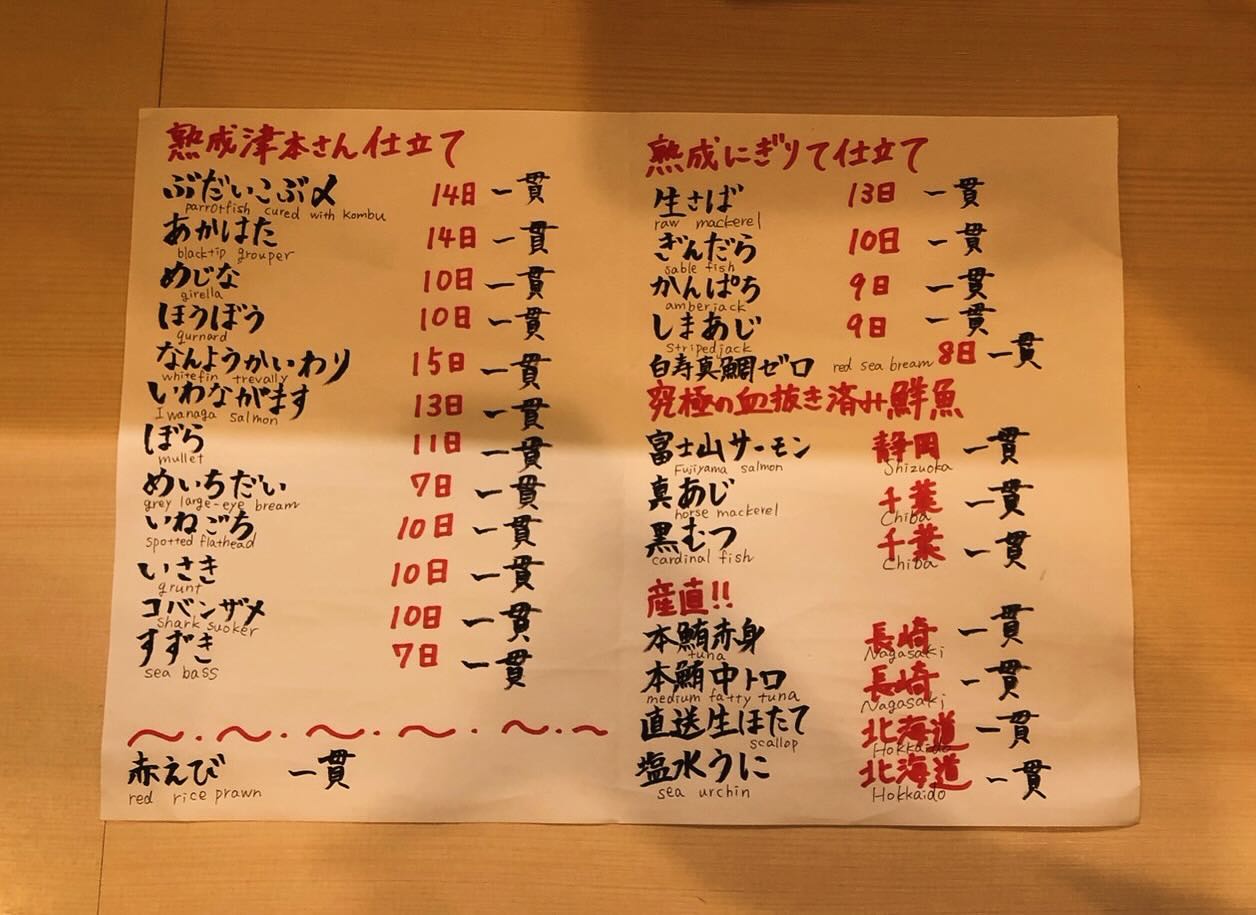 熟成津本さん仕立て
ぶだいこぶ〆 14日 一貫
parrotfish cured with kombu
あかはた 14日 一貫
blacktip grouper
めじな 10日 一貫
girella
ほうぼう 10日 一貫
gurnard
なんようかいわり 15日 一貫
whitefin trevally
いわながます 13日 一貫
Iwanaga salmon
ぼら 11日 一貫
mullet
めいちだい 7日 一貫
grey large-eye bream
いねごち 10日 一貫
spotted flathead
いさき 10日 一貫
grunt
コバンザメ 10日 一貫
shark sucker
すずき 7日 一貫
sea bass
赤えび 一貫
red rice prawn
熟成にぎりて仕立て
生さば 13日 一貫
raw mackerel
ぎんだら 10日 一貫
sable fish
かんぱち 9日 一貫
amberjack
しまあじ 9日 一貫
stripedjack
白寿真鯛ゼロ red sea bream 8日 一貫
究極の血抜き済み鮮魚
富士山サーモン 静岡 一貫
Fujiyama salmon Shizuoka
真あじ 千葉 一貫
horse mackerel Chiba
黒むつ 千葉 一貫
cardinal fish Chiba
産直!!
本鮪赤身 長崎 一貫
tuna Nagasaki
本鮪中トロ 長崎 一貫
medium fatty tuna Nagasaki
直送生ほたて 北海道 一貫
scallop Hokkaido
塩水うに 北海道 一貫
sea urchin Hokkaido